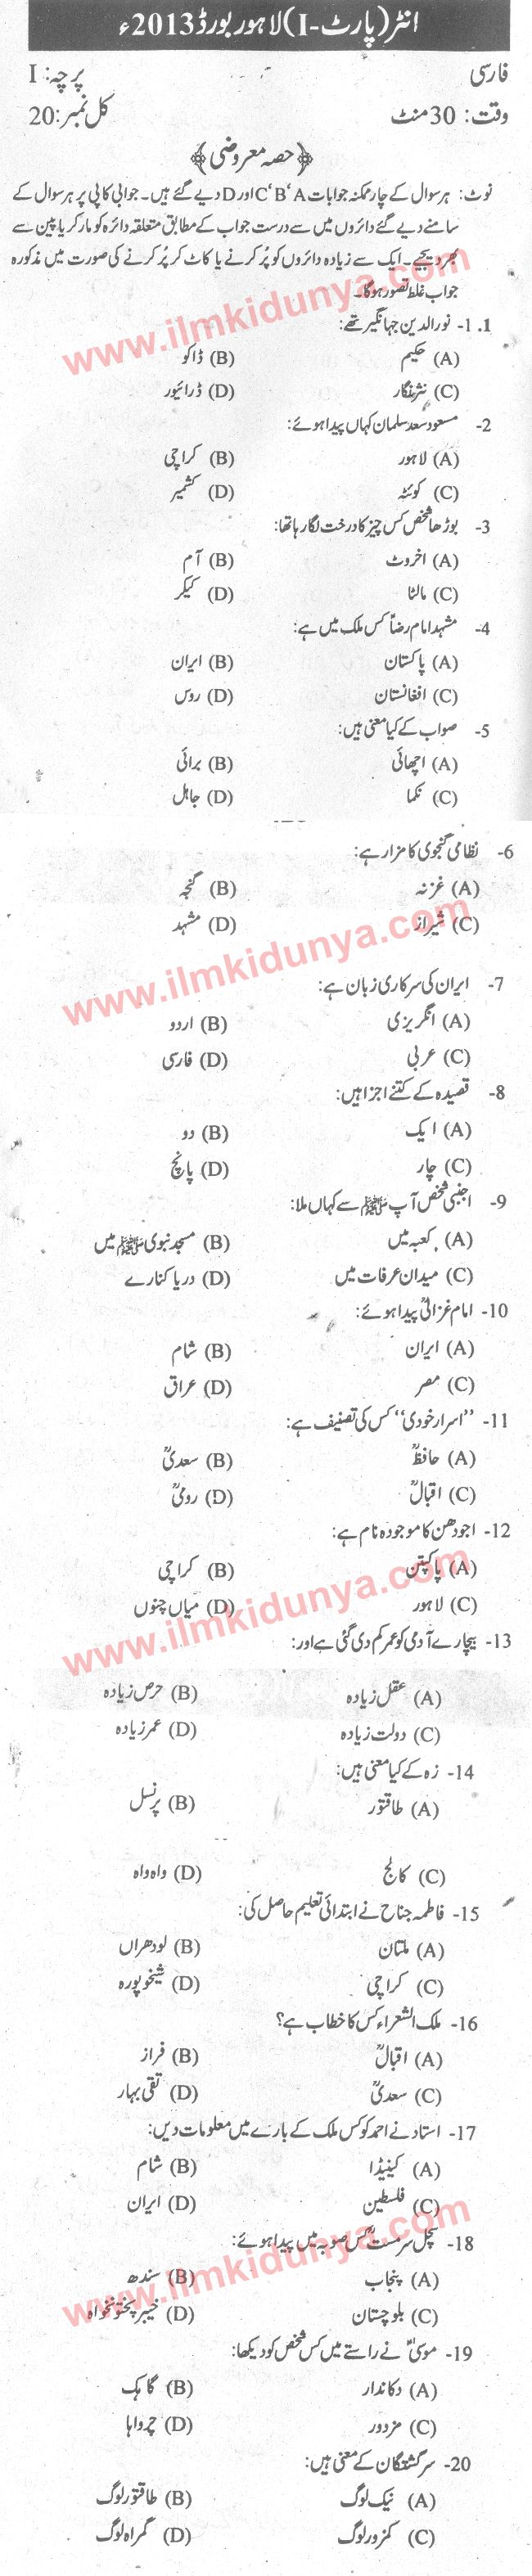 انٹر (پارٹ-I) لاہور بورڈ 2013ء
فارسی پرچہ: I
وقت: 30 منٹ کل نمبر: 20
﴿حصہ معروضی﴾
نوٹ: ہر سوال کے چار ممکنہ جوابات A‘ B‘ C اور D دیے گئے ہیں۔ جوابی کاپی پر ہر سوال کے
سامنے دیے گئے دائروں میں سے درست جواب کے مطابق متعلقہ دائرہ کو مارکر یا پین سے
بھر دیجیے۔ ایک سے زیادہ دائروں کو پُر کرنے یا کاٹ کر پُر کرنے کی صورت میں مذکورہ
جواب غلط تصور ہوگا۔
1. 1- نورالدین جہانگیر تھے:
(A) حکیم (B) ڈاکو
(C) نثرنگار (D) ڈرائیور
2- مسعود سعد سلمان کہاں پیدا ہوئے:
(A) لاہور (B) کراچی
(C) کوئٹہ (D) کشمیر
3- بوڑھا شخص کس چیز کا درخت لگا رہا تھا:
(A) اخروٹ (B) آم
(C) مالٹا (D) کیکر
4- مشہد امام رضاؑ کس ملک میں ہے:
(A) پاکستان (B) ایران
(C) افغانستان (D) روس
5- صواب کے کیا معنی ہیں:
(A) اچھائی (B) برائی
(C) نکما (D) جاہل
6- نظامی گنجوی کا مزار ہے:
(A) غزنہ (B) گنجہ
(C) شیراز (D) مشہد
7- ایران کی سرکاری زبان ہے:
(A) انگریزی (B) اردو
(C) عربی (D) فارسی
8- قصیدہ کے کتنے اجزا ہیں:
(A) ایک (B) دو
(C) چار (D) پانچ
9- اجنبی شخص آپ ﷺ سے کہاں ملا:
(A) کعبہ میں (B) مسجد نبوی ﷺ میں
(C) میدان عرفات میں (D) دریا کنارے
10- امام غزالیؒ پیدا ہوئے:
(A) ایران (B) شام
(C) مصر (D) عراق
11- ’’اسرار خودی‘‘ کس کی تصنیف ہے:
(A) حافظؒ (B) سعدیؒ
(C) اقبالؒ (D) رومیؒ
12- اجودھن کا موجودہ نام ہے:
(A) پاکپتن (B) کراچی
(C) لاہور (D) میاں چنوں
13- بیچارے آدمی کو عمر کم دی گئی ہے اور:
(A) عقل زیادہ (B) حرص زیادہ
(C) دولت زیادہ (D) عمر زیادہ
14- زہ کے کیا معنی ہیں:
(A) طاقتور (B) پرنسل
(C) کالج (D) واہ واہ
15- فاطمہ جناح نے ابتدائی تعلیم حاصل کی:
(A) ملتان (B) لودھراں
(C) کراچی (D) شیخوپورہ
16- ملک الشعراء کس کا خطاب ہے؟
(A) اقبالؒ (B) فراز
(C) سعدیؒ (D) تقی بہار
17- استاد نے احمد کو کس ملک کے بارے میں معلومات دیں:
(A) کینیڈا (B) شام
(C) فلسطین (D) ایران
18- سچل سرمستؒ کس صوبہ میں پیدا ہوئے:
(A) پنجاب (B) سندھ
(C) بلوچستان (D) خیبر پختونخواہ
19- موسیٰؑ نے راستے میں کس شخص کو دیکھا:
(A) دکاندار (B) گاہک
(C) مزدور (D) چرواہا
20- سرگشتگان کے معنی ہیں:
(A) نیک لوگ (B) طاقتور لوگ
(C) کمزور لوگ (D) گمراہ لوگ
www.ilmkidunya.com
www.ilmkidunya.com
www.ilmkidunya.com
www.ilmkidunya.com